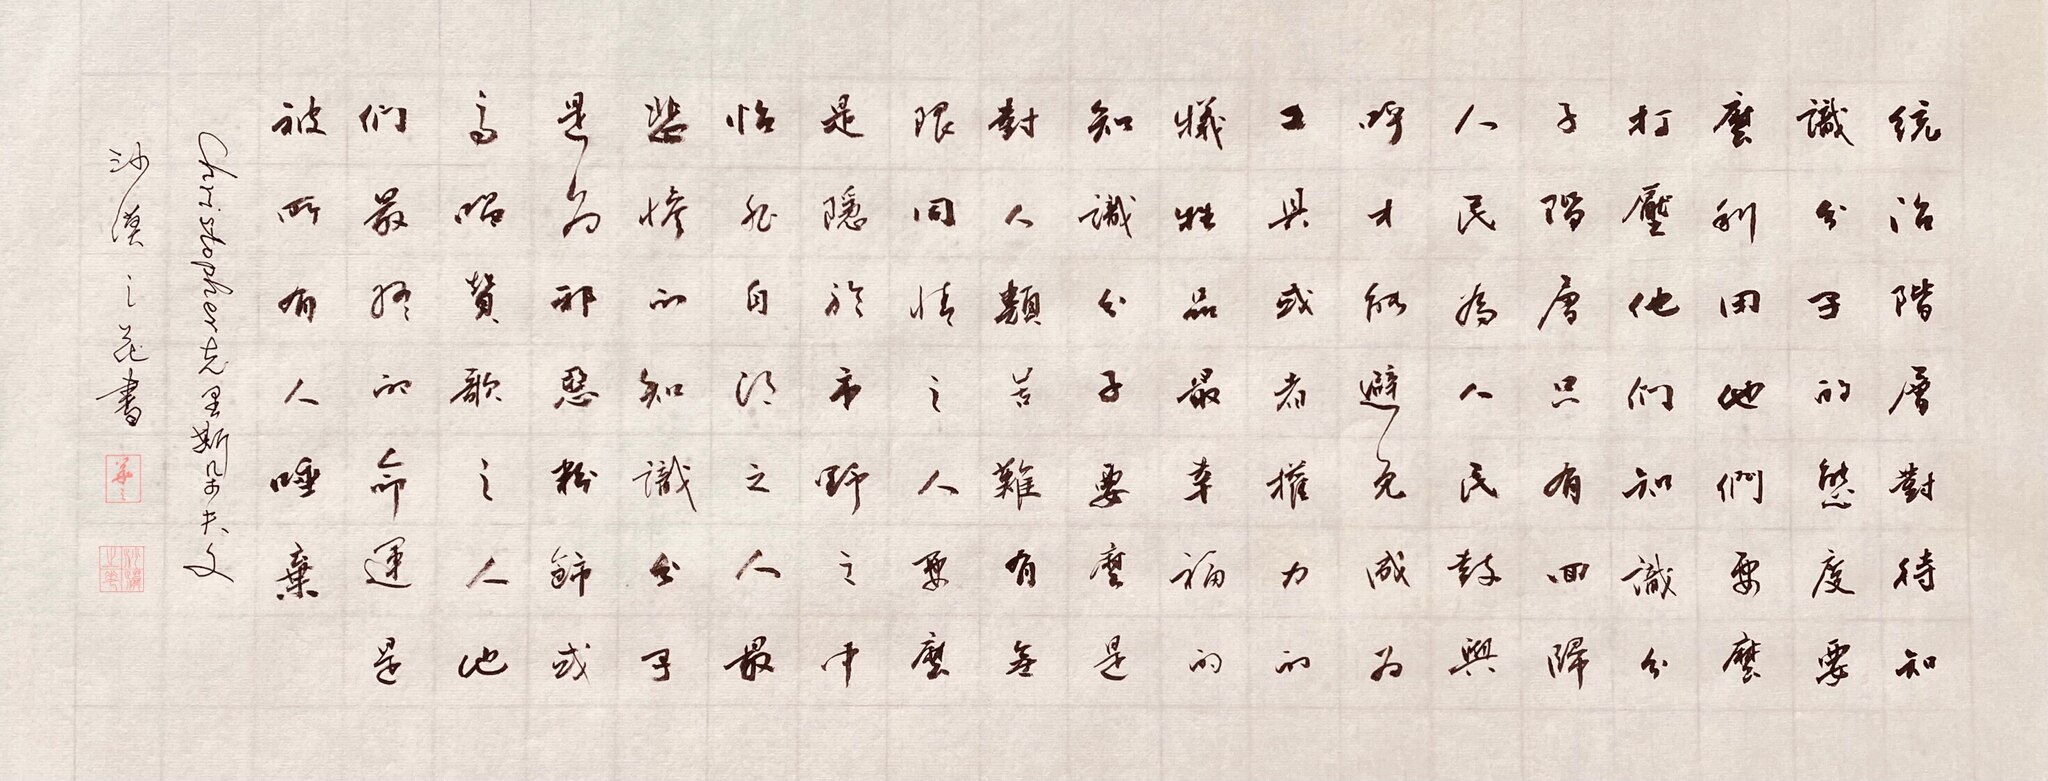 統治階層對待知
識分子的態度要
麼利用他們要麼
打壓他們知識分
子階層只有回歸
人民為人民鼓與
呼才能避免成為
工具或者權力的
犧牲品最幸福的
知識分子要麼是
對人類苦難有無
限同情之人要麼
是隱於市野之中
怡然自得之人最
悲慘的知識分子
是為邪惡粉飾或
高唱贊歌之人他
們最終的命運是
被所有人唾棄
Christopher克里斯朵夫文
沙漠之花書
沙漠之花